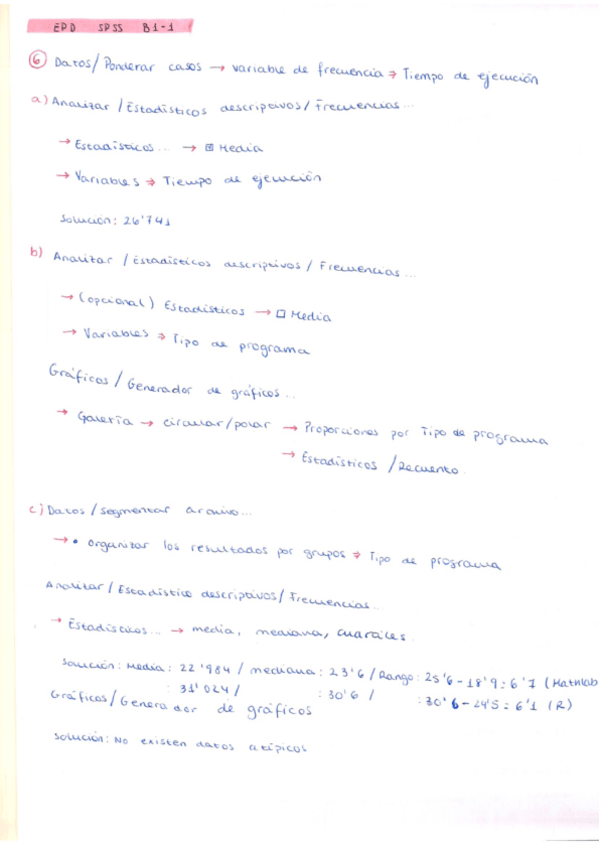 EPD SPSS B1-1
⑥ Datos/Ponderar casos → variable de frecuencia ⇒ Tiempo de ejecución
a) Analizar/Estadísticos descriptivos/Frecuencias...
→ Estadísticos... → ☒ Media
→ Variables ⇒ Tiempo de ejecución
Solución: 26'741
b) Analizar/Estadísticos descriptivos/Frecuencias...
→ (opcional) Estadísticos → ☐ Media
→ Variables ⇒ Tipo de programa
Gráficos/Generador de gráficos...
→ Galería → circular/polar → Proporciones por Tipo de programa
→ Estadísticos/Recuento.
c) Datos/segmentar archivo...
→ • organizar los resultados por grupos ⇒ Tipo de programa
Analizar/Estadístico descriptivos/Frecuencias...
→ Estadísticos... → media, mediana, cuartiles.
Solución: Media: 22'984 / mediana: 23'6 / Rango: 25'6-18'9: 6'7 (Mathlab
: 31'024 / : 30'6 / : 30'6-24'5: 6'1 (R)
Gráficos/Generador de gráficos
Solución: No existen datos atípicos